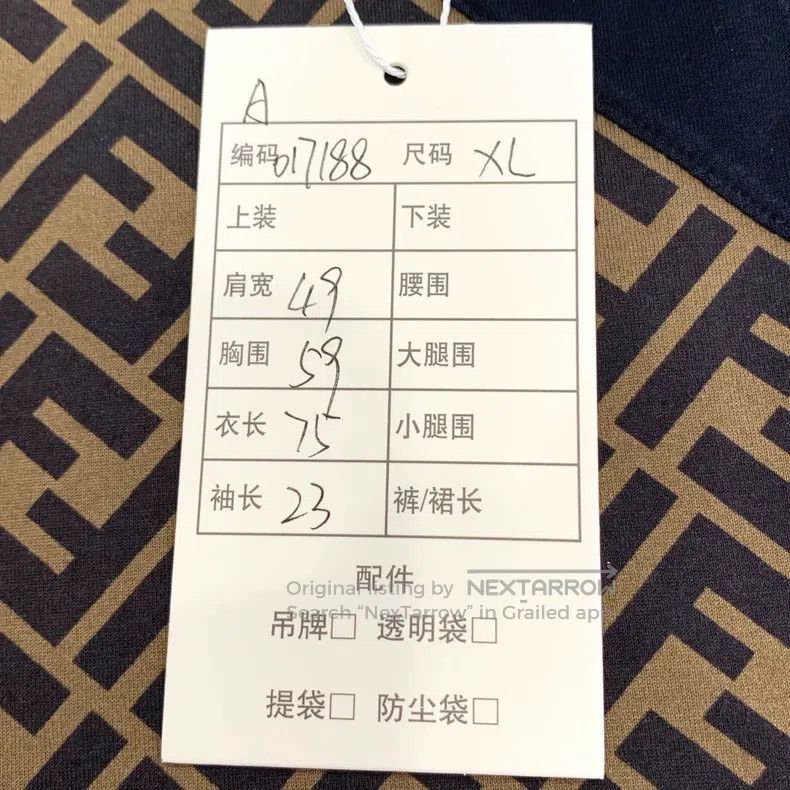 A
编码 017188 尺码 XL
上装 下装
肩宽 49 腰围
胸围 59 大腿围
衣长 75 小腿围
袖长 23 裤/裙长
配件
Original listing by NEXTARROW
Search “NexTarrow” in Grailed app
吊牌□ 透明袋□
提袋□ 防尘袋□